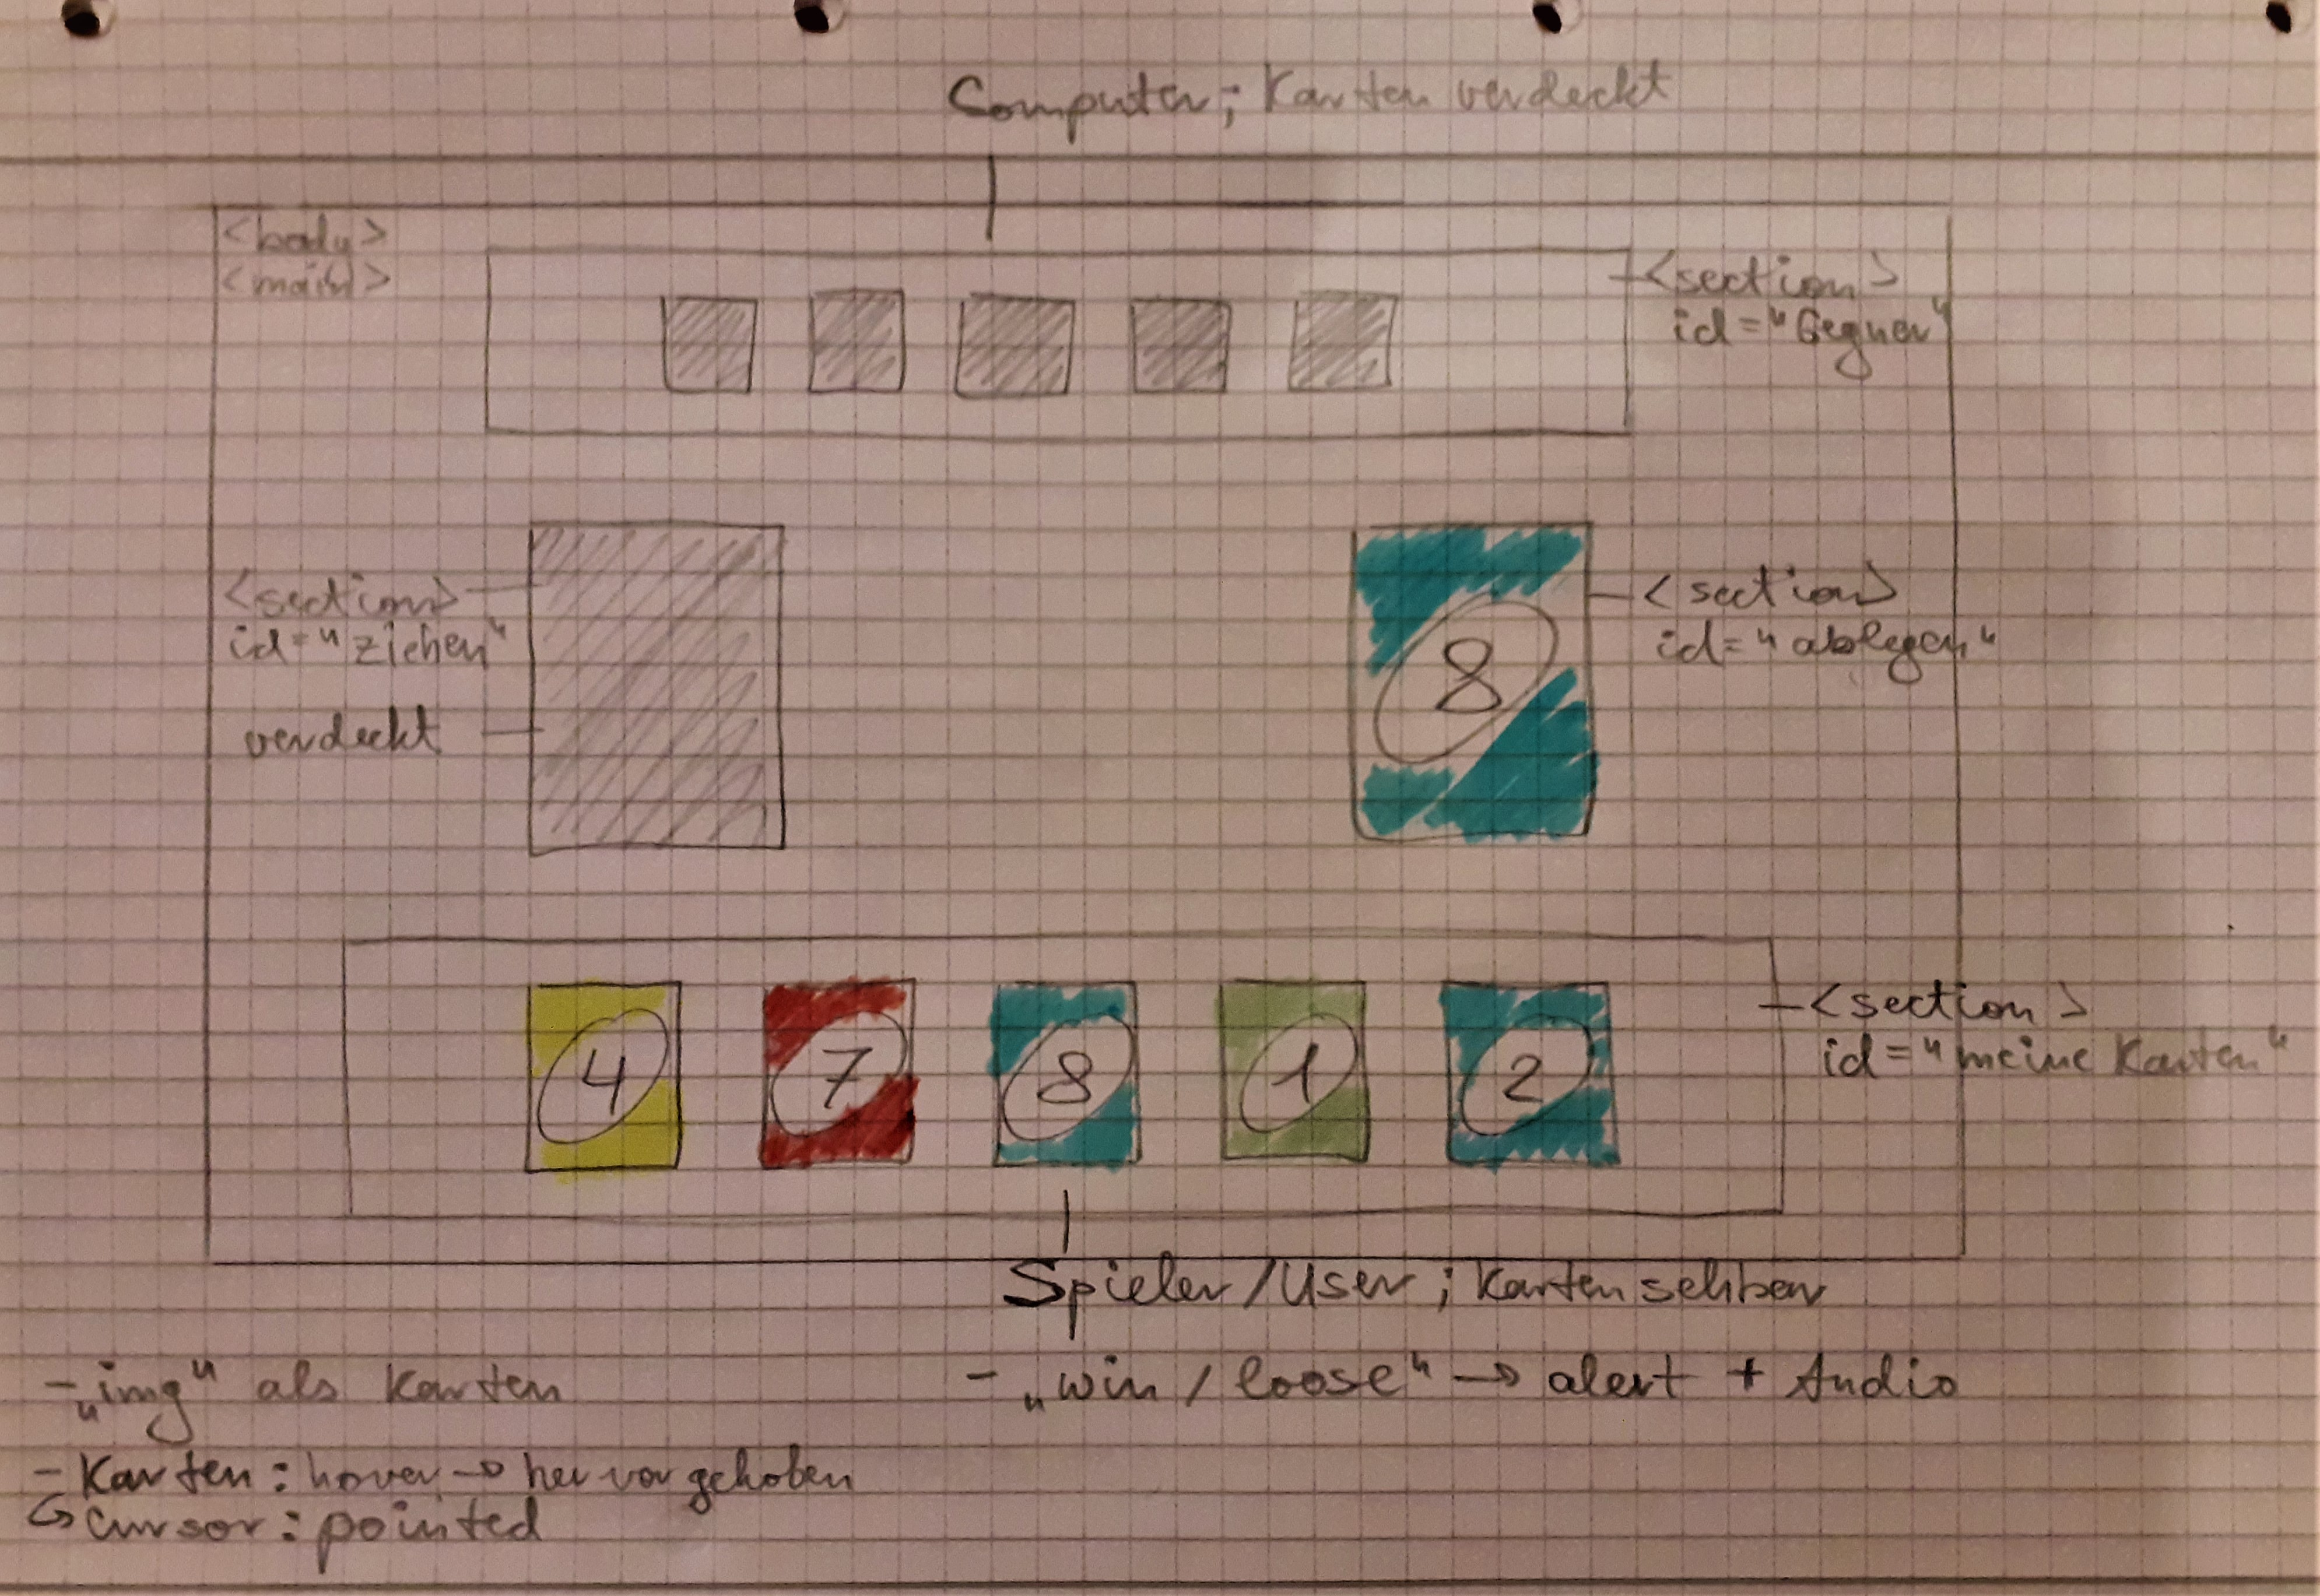 Computer; Karten verdeckt
<body>
<main>
<section>
id="Gegner"
<section>
id="ziehen"
verdeckt
8
<section>
id="ablegen"
4 7 8 1 2
<section>
id="meine Karten"
Spieler/User; Karten sehbar
- „img" als Karten
- „win / loose" → alert + Audio
- Karten: hover → hervorgehoben
↳ cursor: pointed